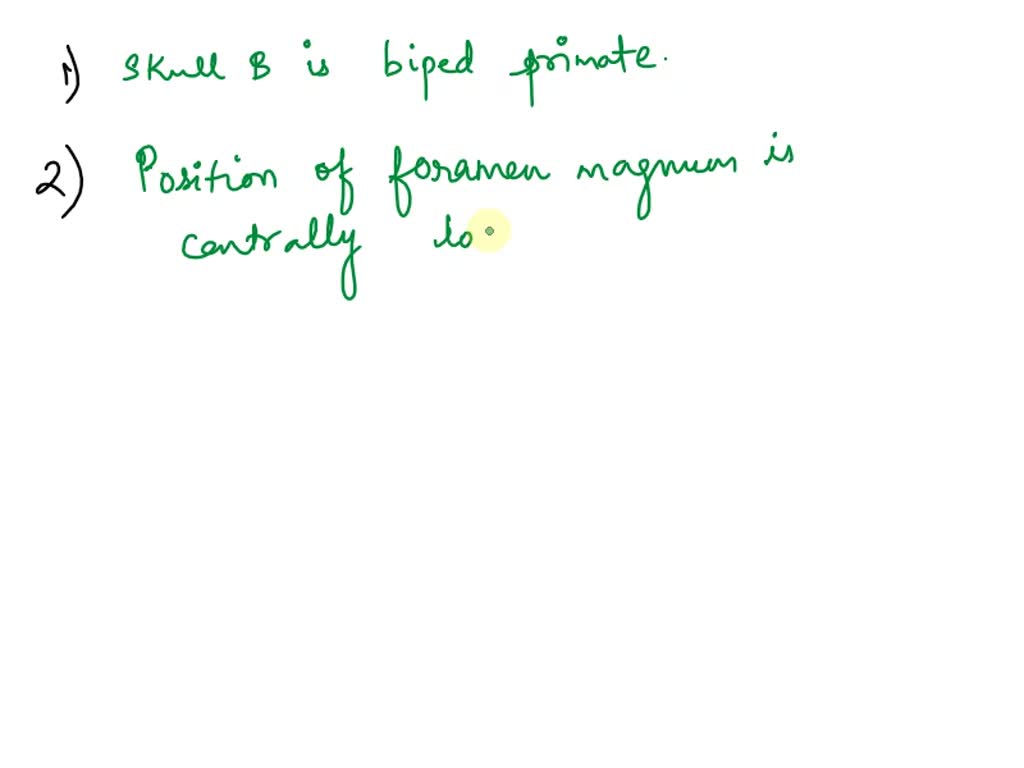 1) Skull B is biped primate.
2) Position of foramen magnum is
centrally lo